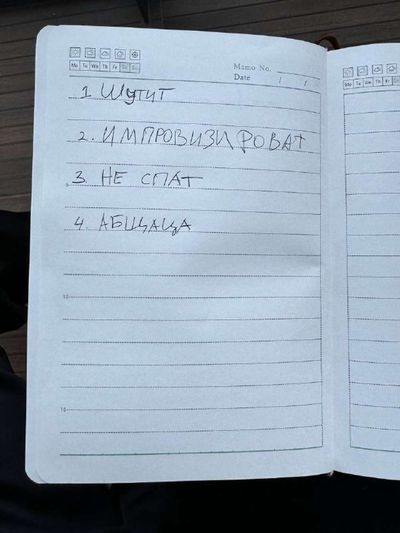 Mo Tu We Th Fr Sa Su
Memo No.
Date / /
1 ШУТИТ
2. ИМПРОВИЗИРОВАТ
3. НЕ СПАТ
4. АБЦЦАЦА
10